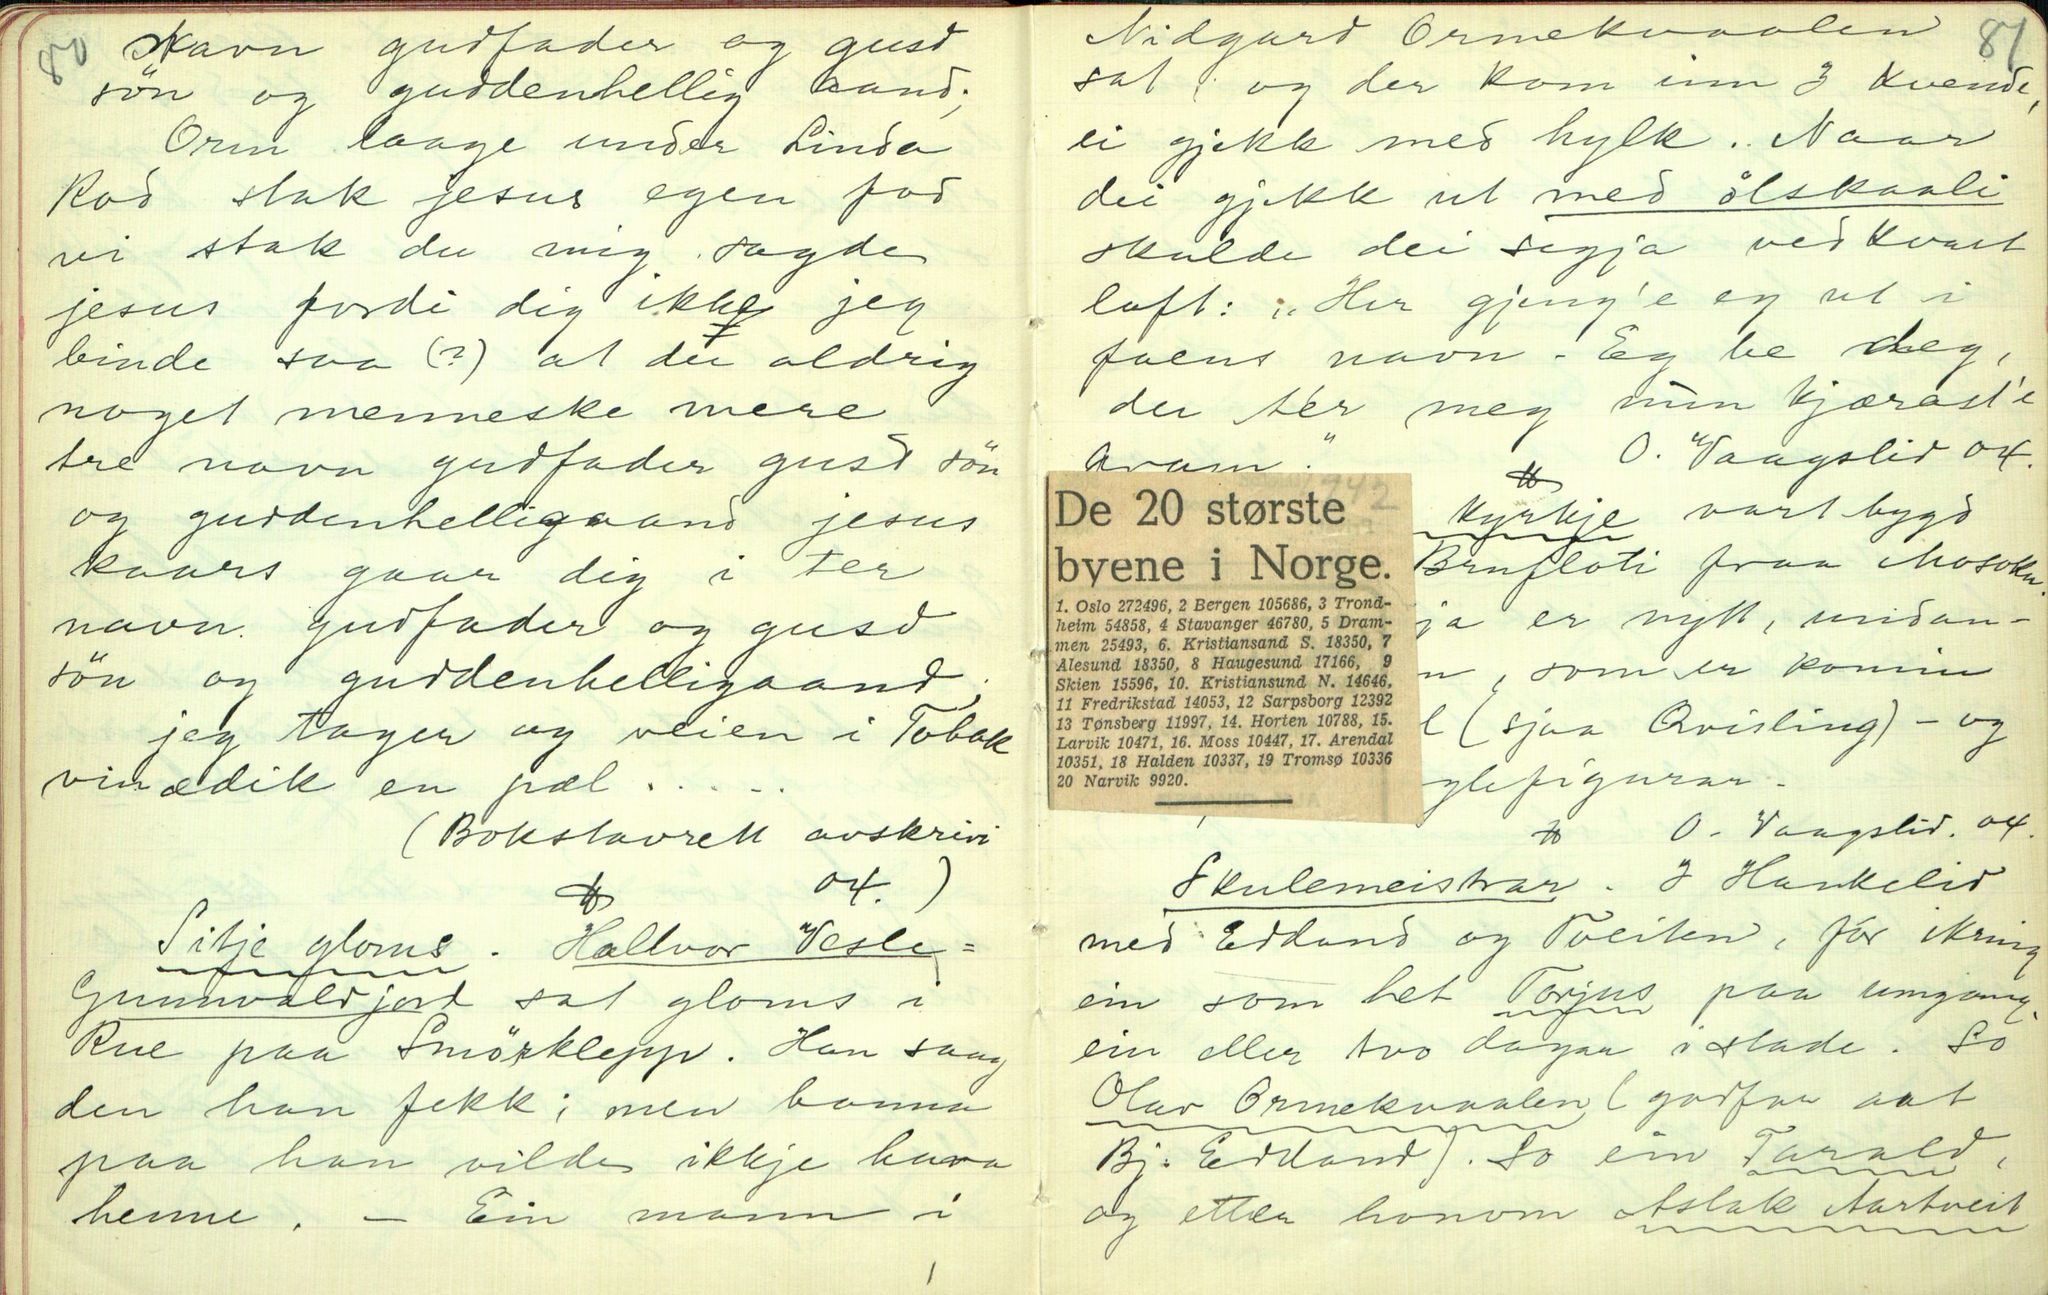 80
Navn gudfader og gusd
sön og guddenhellig aand;
Orm laage under Linda
Rod stak jesus egen fod
vi stak du mig sagde
jesus fordi dig ikke jeg
binde saa (?) at du aldrig
noget menneske mere
tre navn gudfader gusd sön
og guddenhelligaand jesus
kaars gaar dig i ter
navn gudfader og gusd
sön og guddenhelligaand;
jeg tager og veien i Tobak
vinædik en pæl.....
(Bokstavrett avskrivi
04.)
Sitje gloms. Hallvor Vesle=
Gunnvaldjord sat gloms i
Rue paa Smörklepp. Han saag
den han fekk; men banna
paa han vilde ikkje hava
henne. — Ein mann i
87
Nidgard Ormekvaalen
sat og der kom inn 3 kvende,
ei gjekk med hylk. Naar
dei gjekk ut med ölskaali
skulde dei segja ved kvart
loft: "Her gjeng'e eg ut i
faens navn - Eg be deg,
du tér meg min kjærast'e
aram."
O. Vaagslid 04.
De 20 største
byene i Norge.
1. Oslo 272496, 2 Bergen 105686, 3 Trond-
heim 54858, 4 Stavanger 46780, 5 Dram-
men 25493, 6. Kristiansand S. 18350, 7
Ålesund 18350, 8 Haugesund 17166, 9
Skien 15596, 10. Kristiansund N. 14646,
11 Fredrikstad 14053, 12 Sarpsborg 12392
13 Tønsberg 11997, 14. Horten 10788, 15.
Larvik 10471, 16. Moss 10447, 17. Arendal
10351, 18 Halden 10337, 19 Tromsø 10336
20 Narvik 9920.
1942
kyrkje vart bygd
Brufloti fraa Mosokn.
ja er nytt, undan-
n, som er komin
l (sjaa Qvisling) - og
glefigurar.
O. Vaagslid. 04.
Skulemeistrar. I Haukelid
med Edland og Tveiten, fór ikring
ein som het Torjus paa umgang,
ein eller two dagar i stade. So
Olav Ormekvaalen (godfar aat
Bj. Edland). So ein Tarald,
og etter honom Aslak Aartveit